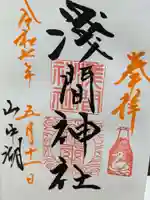 奉拝
淺間神社
令和七年
五月十一日
山中湖